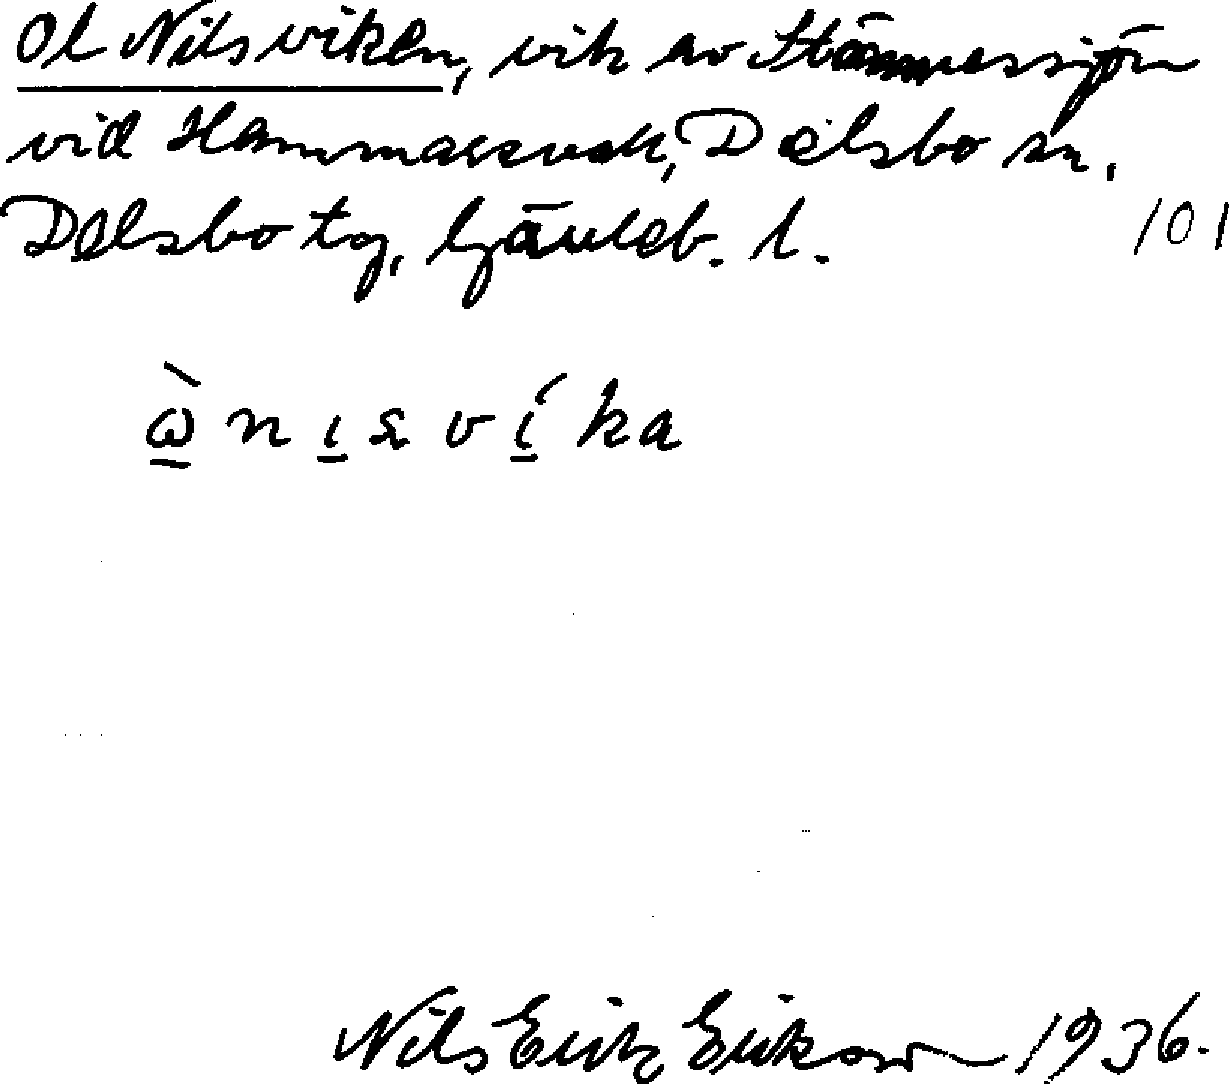 Ol Nilsviken, vik av Stömnessjön
vid Hammarsvall, Delsbo sn,
Delsbo tg, Gävleb. l.
101
ὼnısvíka
Nils Erik Erikson 1936.